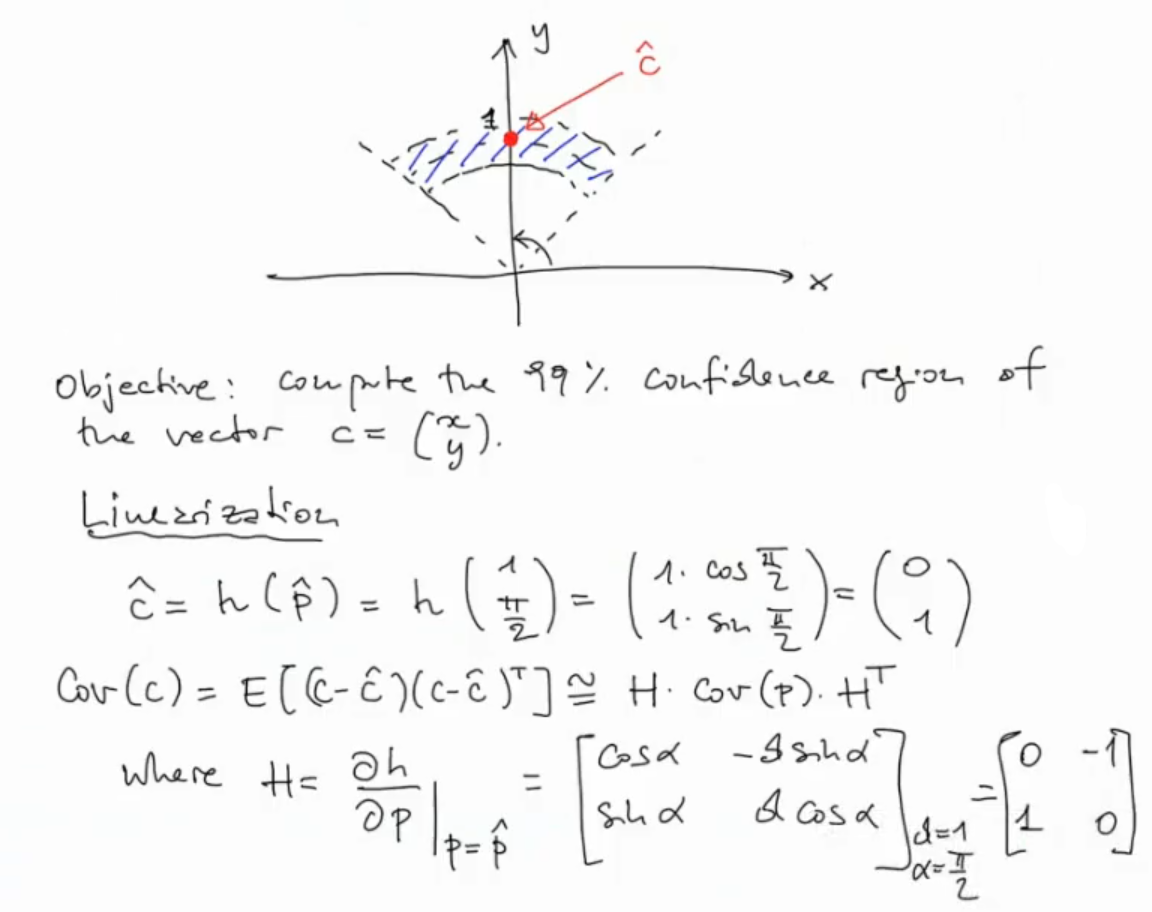 y
ĉ
1
x
Objective: compute the 99% confidence region of
the vector c = (x y).
Linearization
ĉ = h(p̂) = h(1 π/2) = (1·cos π/2 1·sin π/2) = (0 1)
Cov(c) = E[(c-ĉ)(c-ĉ)ᵀ] ≅ H·Cov(p)·Hᵀ
where H = ∂h/∂p |p=p̂ = [cosα -d sinα sinα d cosα] d=1 α=π/2 = [0 -1 1 0]